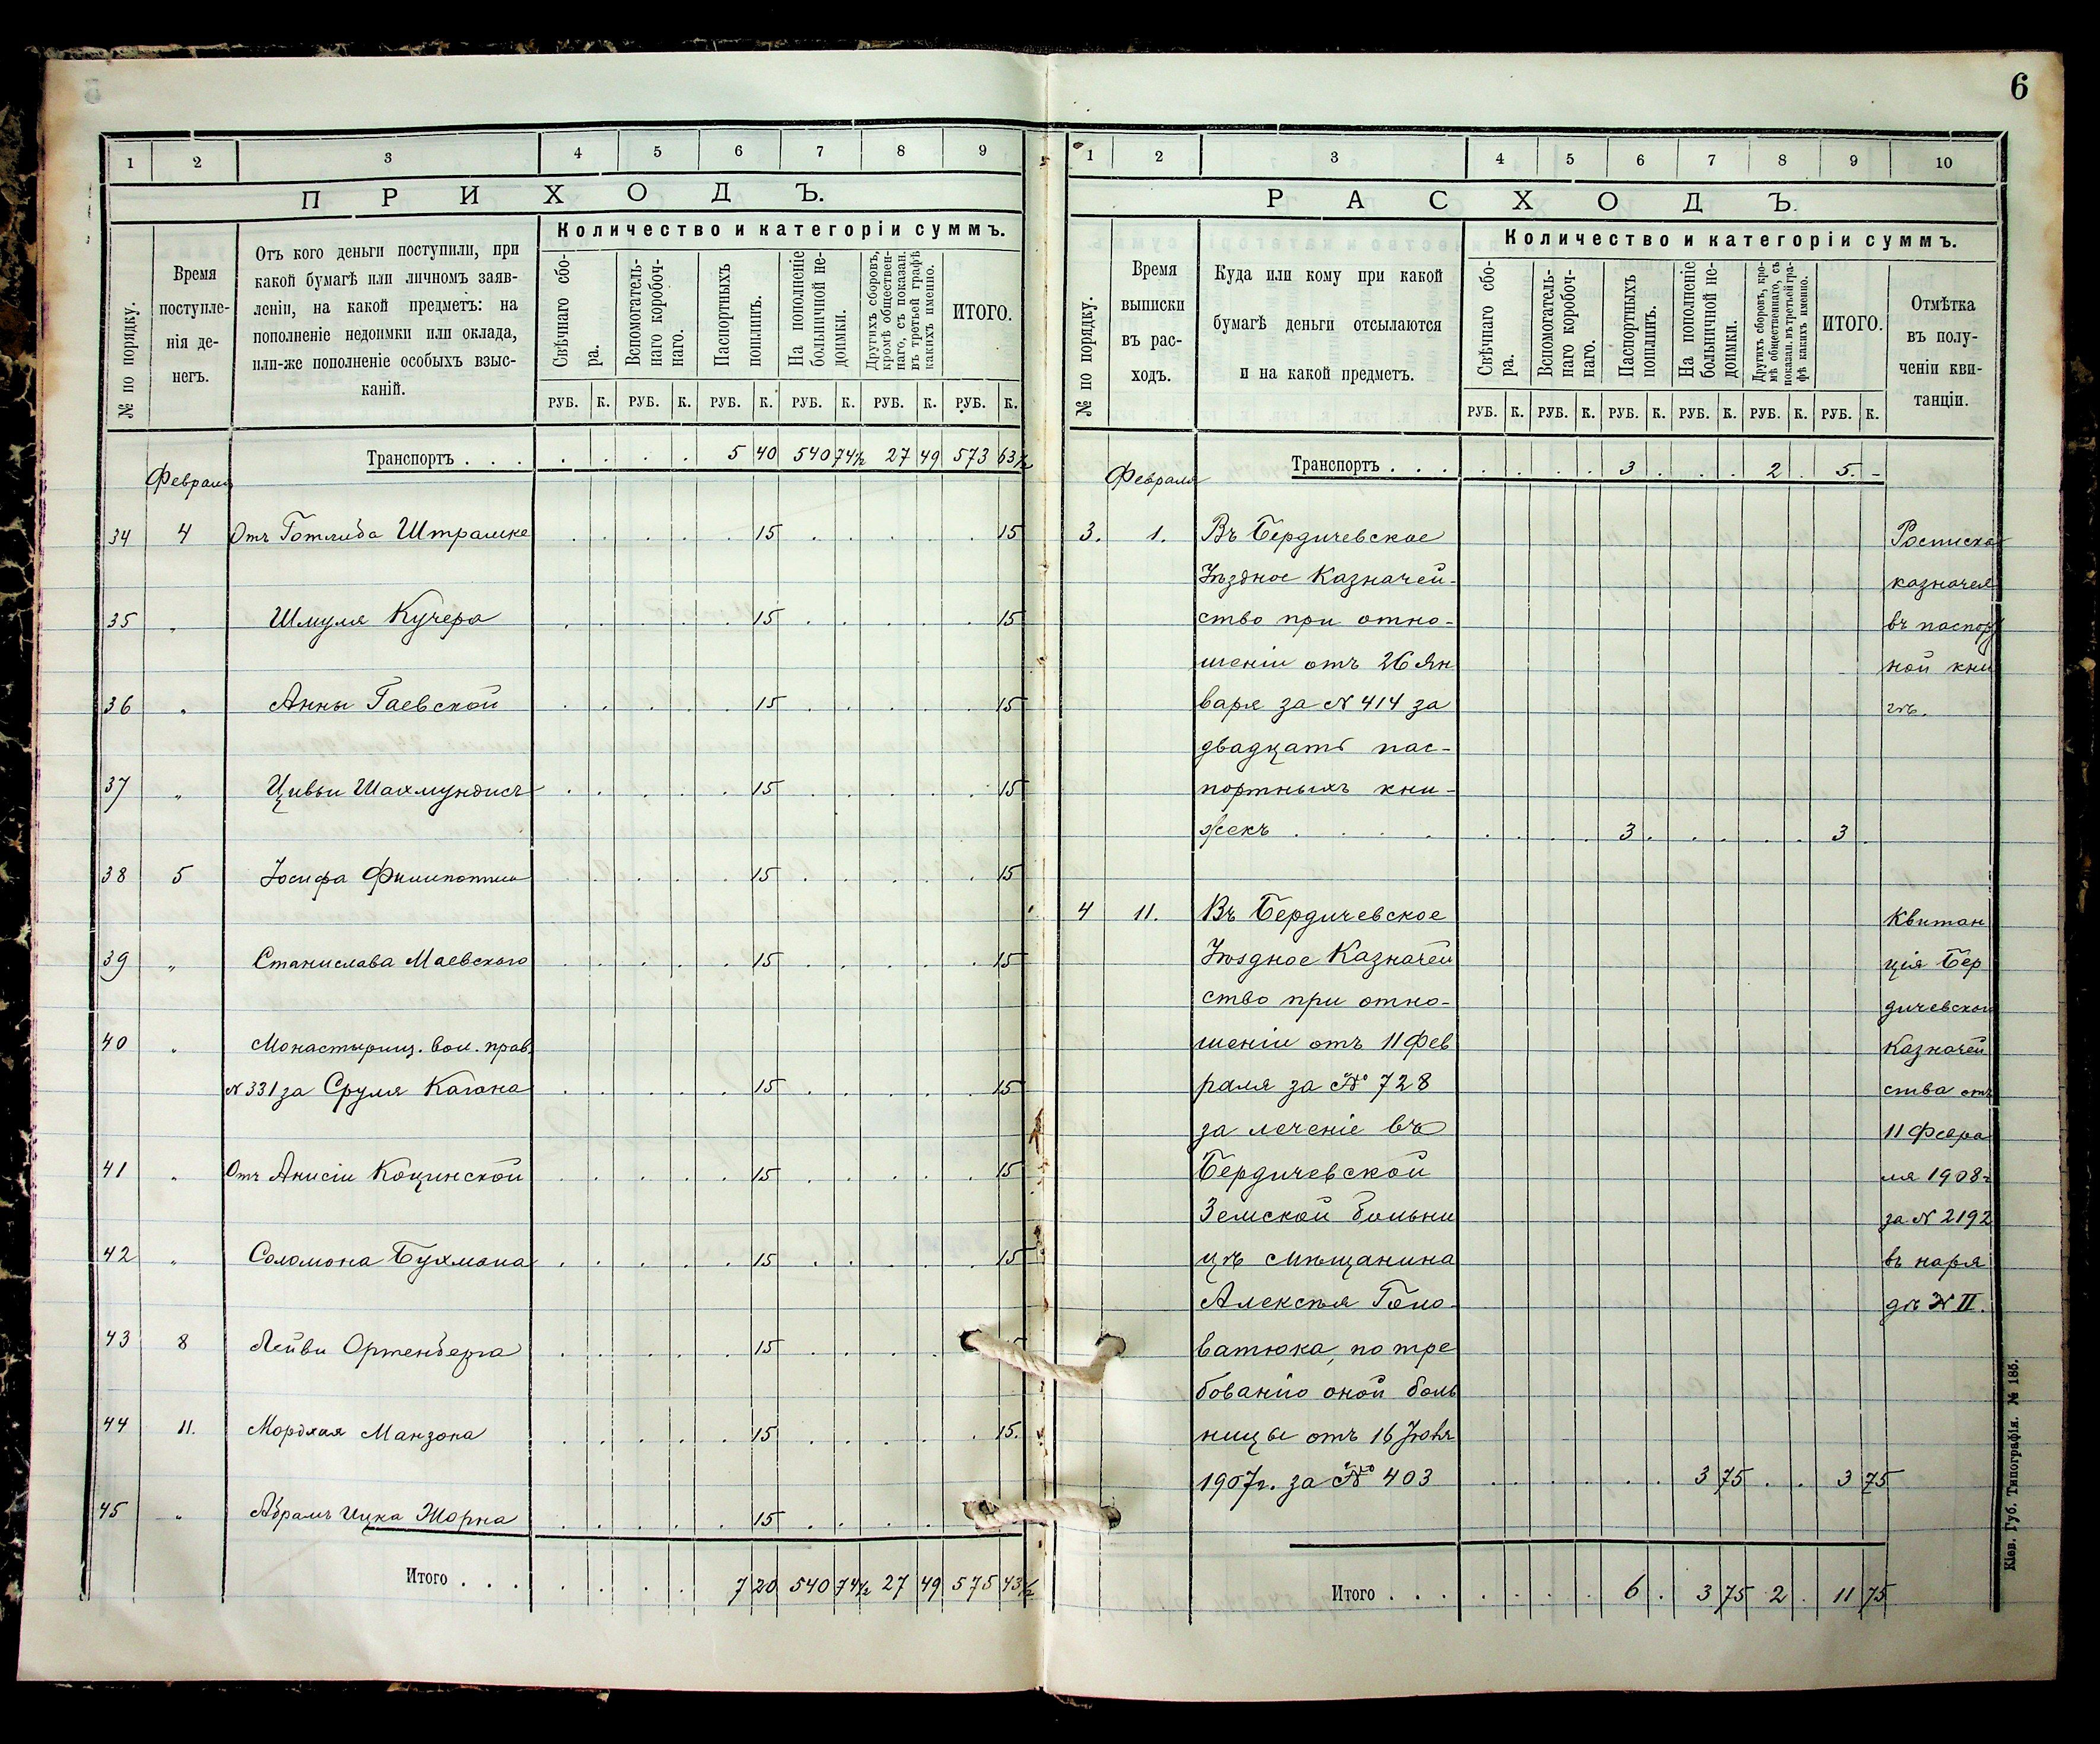 6
1 2 3 4 5 6 7 8 9
ПРИХОДЪ.
№ по порядку.
Время
поступле-
нія де-
негъ.
Отъ кого деньги поступили, при
какой бумагѣ или личномъ заяв-
леніи, на какой предметъ: на
пополненіе недоимки или оклада,
или-же пополненіе особыхъ взыс-
каній.
Количество и категоріи суммъ.
Свѣчнаго сбо-
ра.
Вспомогатель-
наго коробоч-
наго.
Паспортныхъ
пошлинъ.
На пополненіе
больничной не-
доимки.
Другихъ сборовъ,
кромѣ обществен-
наго, съ показан.
въ третьей графѣ
какихъ именно.
ИТОГО.
РУБ. К. РУБ. К. РУБ. К. РУБ. К. РУБ. К. РУБ. К.
Транспортъ . . . . . . . 5 40 540 74½ 27 49 573 63½
Февраля
34 4 Отъ Готлиба Штрамке . . . . . 15 . . . . . 15
35 " Шмуля Кучера . . . . . 15 . . . . . 15
36 " Анны Гаевской . . . . . 15 . . . . . 15
37 " Цивьи . . . . . 15 . . . . . 15
38 5 Іосифа . . . . . 15 . . . . . 15
39 " Станислава Маевского . . . . . 15 . . . . . 15
40 " Монастырищ. вол. прав.
N 331 за Сруля Кагана . . . . . 15 . . . . . 15
41 " Отъ Анисіи Коцинской . . . . . 15 . . . . . 15
42 " Соломона Бухмана . . . . . 15 . . . . . 15
43 8 Лейви Ортенберга . . . . . 15 . . . .
44 11. Мордхая Манзона . . . . . 15 . . . . . 15.
45 " Абрамъ Ицка Жорна . . . . . 15 . . . .
Итого . . . . . . . 7 20 540 74½ 27 49 575 43½
1 2 3 4 5 6 7 8 9 10
РАСХОДЪ.
№ по порядку.
Время
выписки
въ рас-
ходъ.
Куда или кому при какой
бумагѣ деньги отсылаются
и на какой предметъ.
Количество и категоріи суммъ.
Свѣчнаго сбо-
ра.
Вспомогатель-
наго коробоч-
наго.
Паспортныхъ
пошлинъ.
На пополненіе
больничной не-
доимки.
Другихъ сборовъ, кро-
мѣ общественнаго, съ
показан. въ третьей гра-
фѣ какихъ именно.
ИТОГО.
Отмѣтка
въ полу-
ченіи кви-
танціи.
РУБ. К. РУБ. К. РУБ. К. РУБ. К. РУБ. К. РУБ. К.
Транспортъ . . . . . . . 3 . . . 2 . 5. -
Февраля
3. 1. Въ Бердичевское
Уѣздное Казначей-
ство при отно-
шеніи отъ 26 Ян
варя за N 414 за
двадцать пас-
портныхъ кни-
жекъ . . . . . . . . 3 . . . . . 3 .
Росписка
казначея
въ паспорт
ной кни
гѣ.
4 11. Въ Бердичевское
Уѣздное Казначей
ство при отно-
шеніи отъ 11 Фев
раля за № 728
за леченіе въ
Бердичевской
Земской больни
цѣ мѣщанина
Алексѣя Голо-
ватюка, по тре
бованію оной боль
ницы отъ 16 Іюня
1907г. за № 403 . . . . . . 3 75 . . 3 75
Квитан
ція Бер
дичевскаго
Казначей
ства отъ
11 Февра
ля 1908 г
за N 2192
въ наря
дѣ N II.
Итого . . . . . . . . 6 . 3 75 2 . 11 75
Кіев. Губ. Типографія. № 186.